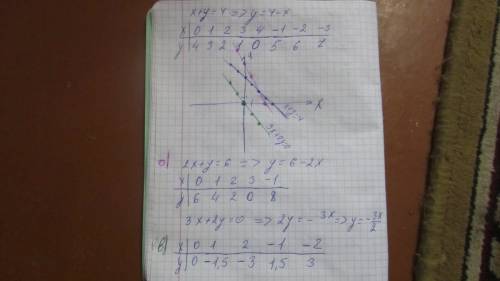 x+y=4 => y=4-x
x | 0 1 2 3 4 -1 -2 -3
y | 4 3 2 1 0 5 6 7
x
x+y=4
3x+2y=0
2x+y=6 => y=6-2x
x | 0 1 2 3 -1
y | 6 4 2 0 8
3x+2y=0 => 2y=-3x => y=-3x/2
в) x | 0 1 2 -1 -2
y | 0 -1,5 -3 1,5 3